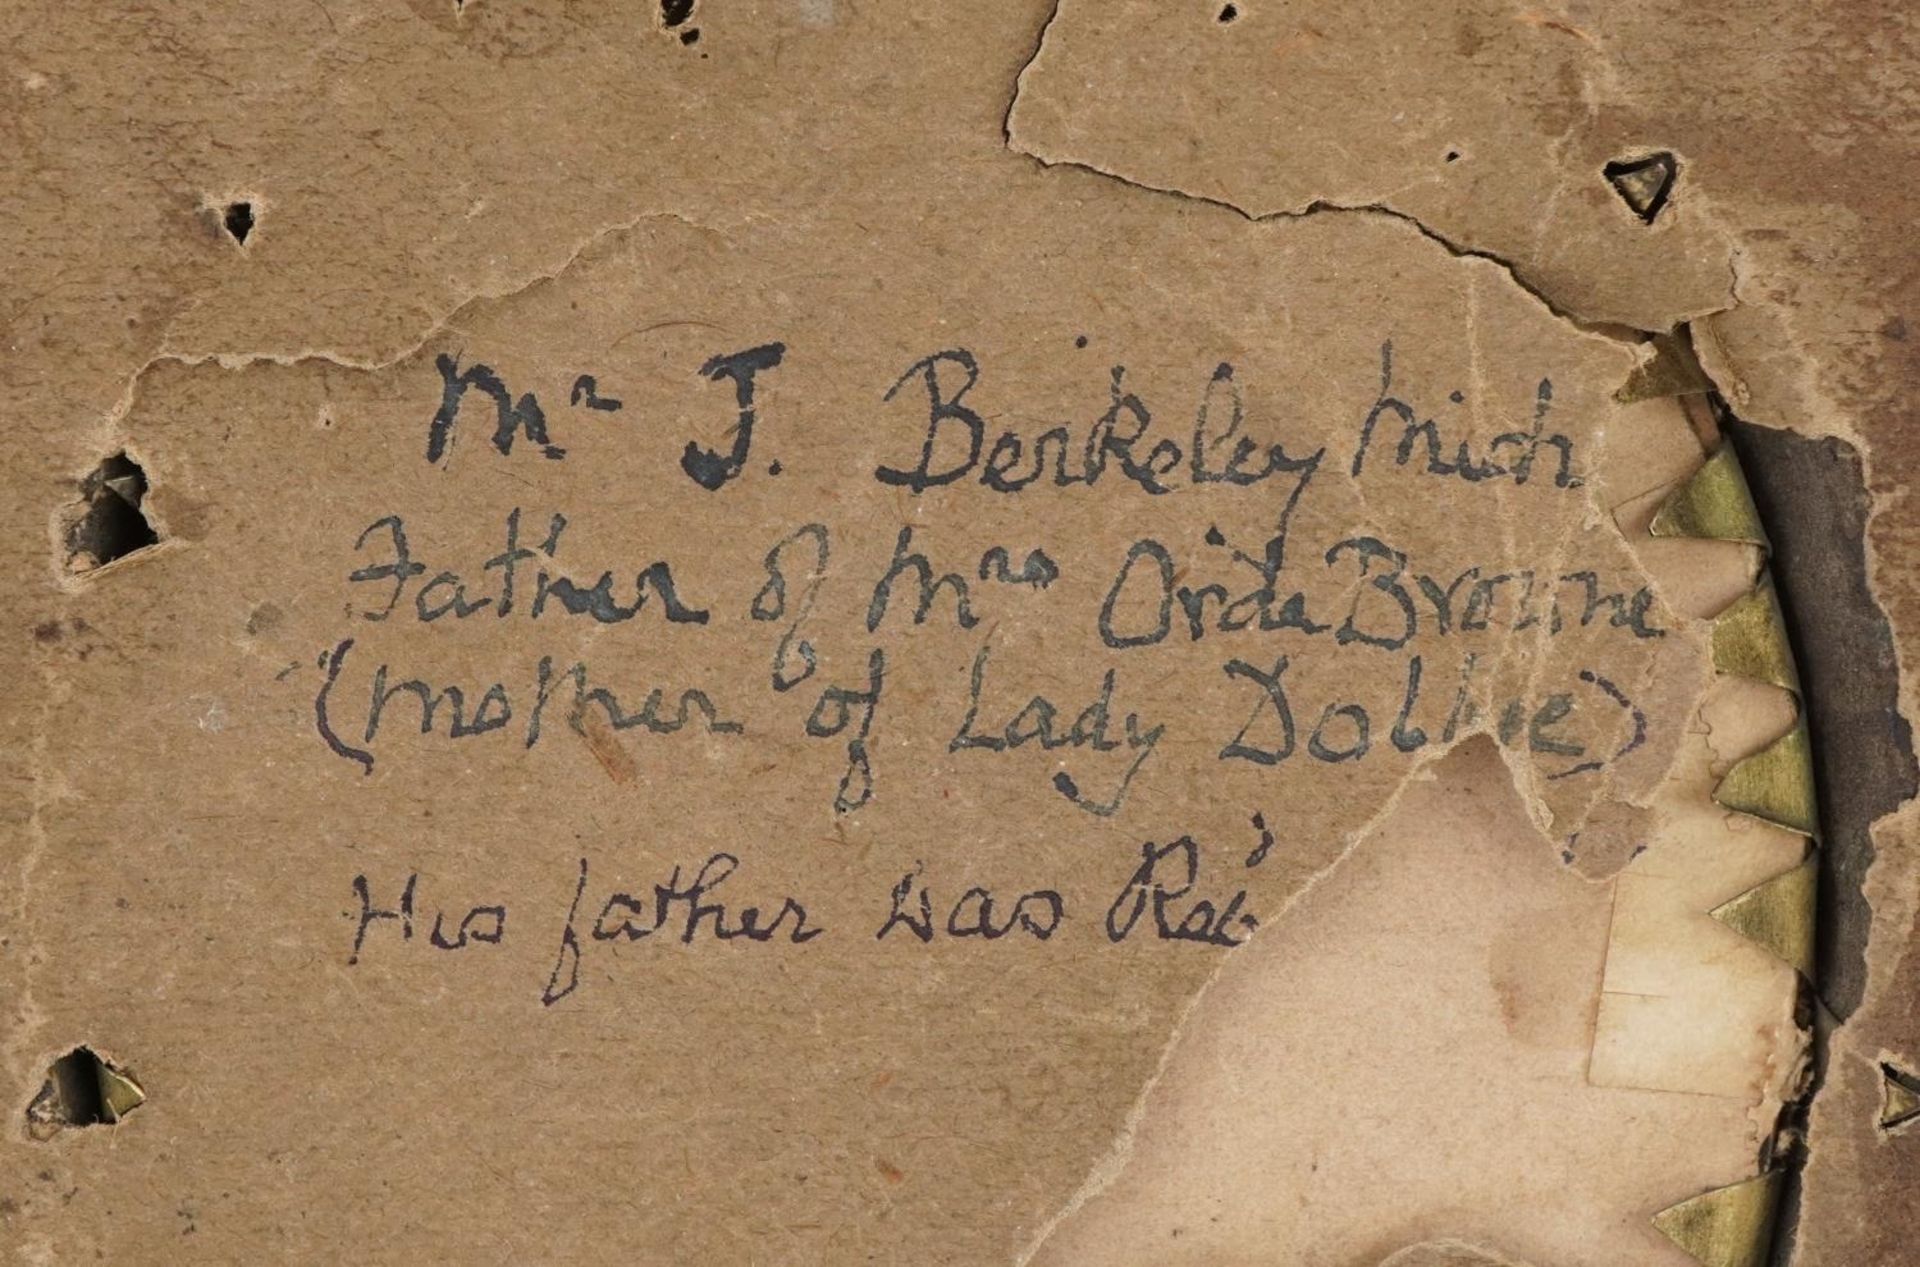 Mr J. Berkeley Mich
Father of Mrs Orde Browne
(Mother of Lady Dobbie)
His father was Rob